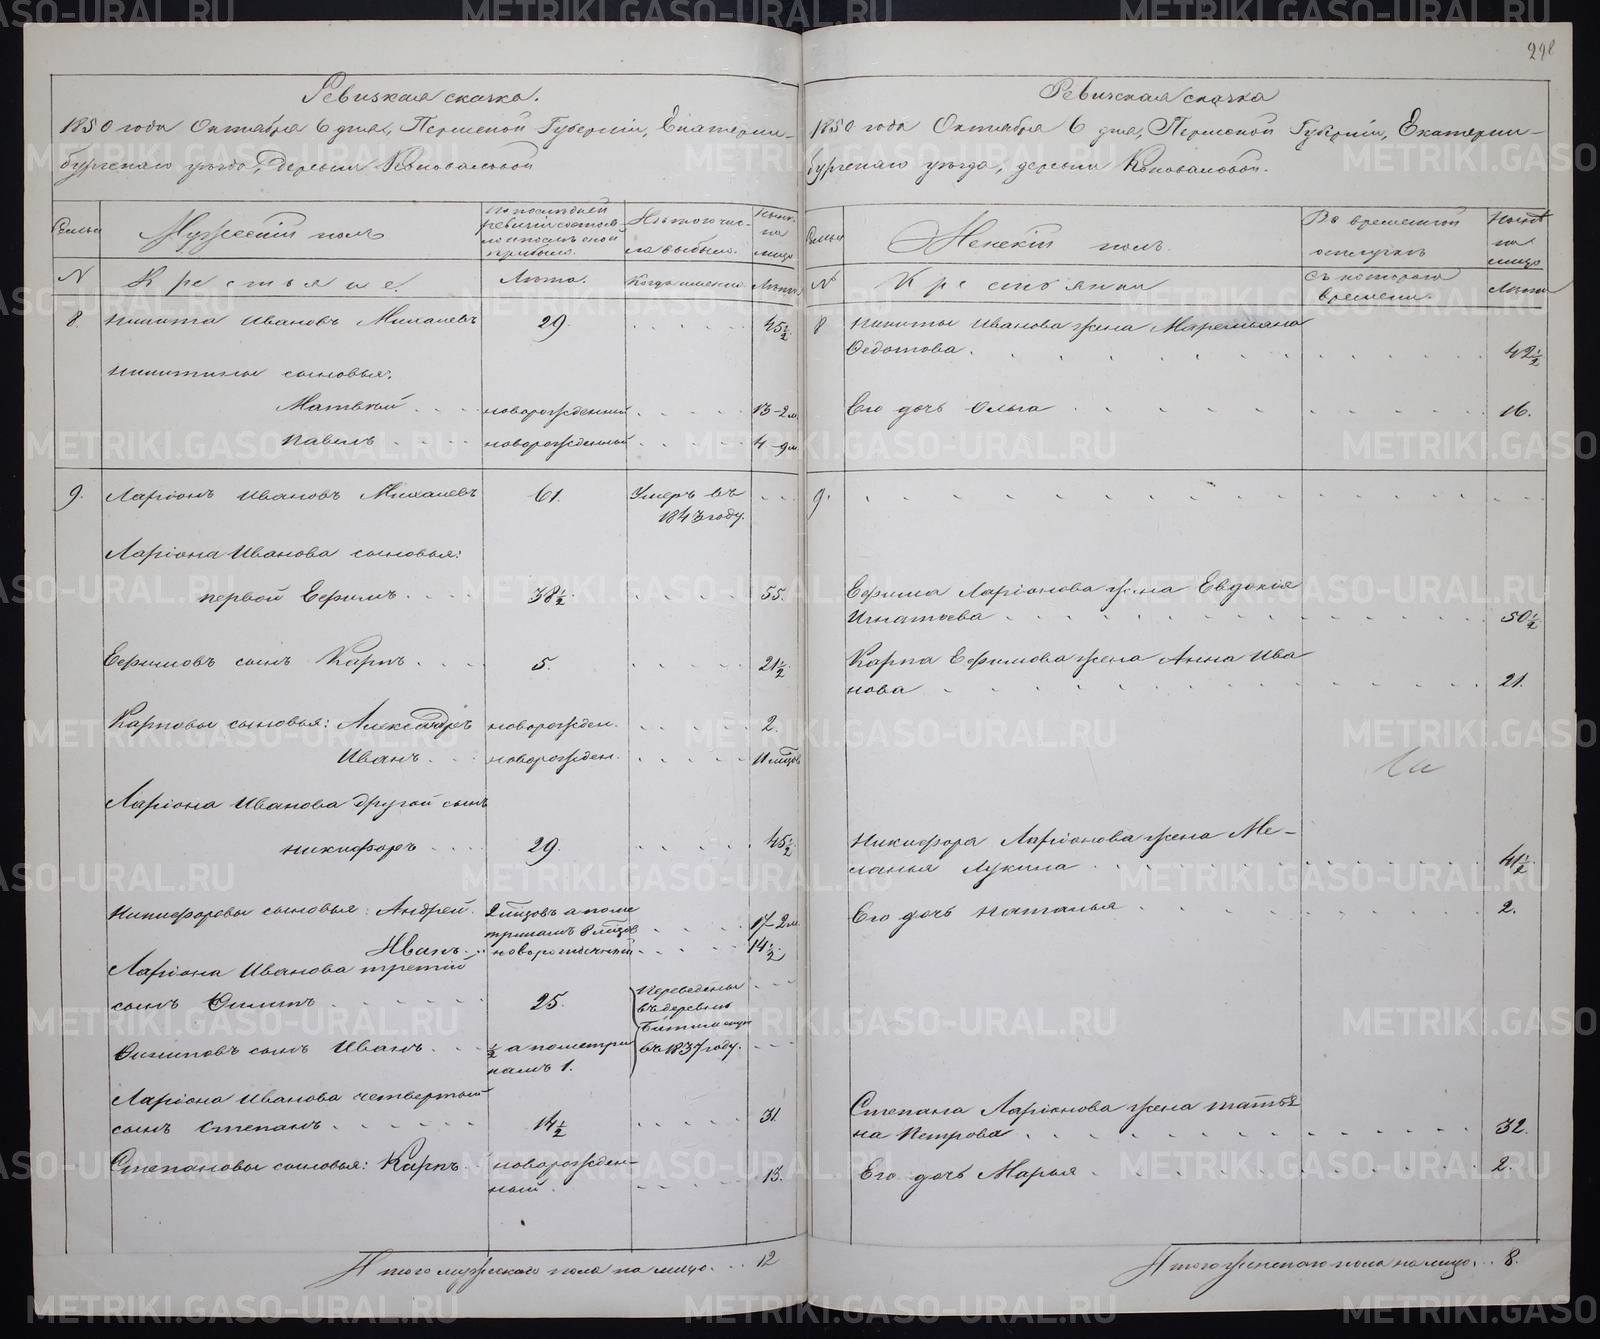 298
Ревизская сказка.
1850 года Октября 6 дня, Пермской Губерніи, Екатерин-
бургскаго уезда, деревни Коноваловой
Семьи
Мужескій полъ
По последней ревизіи состояло и после оной прибыло.
Изъ того числа выбыло.
Ныне на лицо
N
Крестьяне.
Лета.
Когда именно.
Лета.
8. Никита Ивановъ Михалевъ 29. 45½.
Никитины сыновья:
Матвей новорожденный 13-2 м
Павелъ новорожденный 4-9 м
9. Ларіонъ Ивановъ Михалевъ 61. Умеръ въ
1843 году.
Ларіона Иванова сыновья:
первой Ефимъ 38½. 55.
Ефимовъ сынъ Карпъ 5. 21½.
Карповы сыновья: Александръ новорожден. 2.
Иванъ новорожден.
Ларіона Иванова другой сынъ
Никифоръ 29. 45½.
Никифоровы сыновья: Андрей. 17-2 м.
Иванъ новорожденный 14½.
Ларіона Иванова третій
сынъ Филипъ 25. Переведены
въ деревню
Филиповъ сынъ Иванъ въ 1837 году.
Ларіона Иванова четвертый
сынъ Степанъ 14½ 31.
Степановы сыновья: Карпъ новорожден-
ный. 13.
Итого мужескаго пола на лицо 12
Ревизская сказка
1850 года Октября 6 дня, Пермской Губерніи, Екатерин-
бургскаго уезда, деревни Коноваловой.
Семьи
Женскій полъ.
Во временной отлучке
Ныне на лицо
N
Крестьянки
Съ котораго времени.
Лета
8 Никиты Иванова жена Маремьяна
Федотова. 42½
Его дочь Ольга 16.
9.
Ефима Ларіонова жена Евдокія
Игнатьева 50½
Карпа Ефимова жена Анна Ива
нова 21.
Никифора Ларіонова жена Ме-
ланья Лукина 41½
Его дочь Наталья 2.
Степана Ларіонова жена Татья
на Петрова 32.
Его дочь Марья 2.
Итого женскаго пола на лицо 8.
METRIKI.GASO-URAL.RU